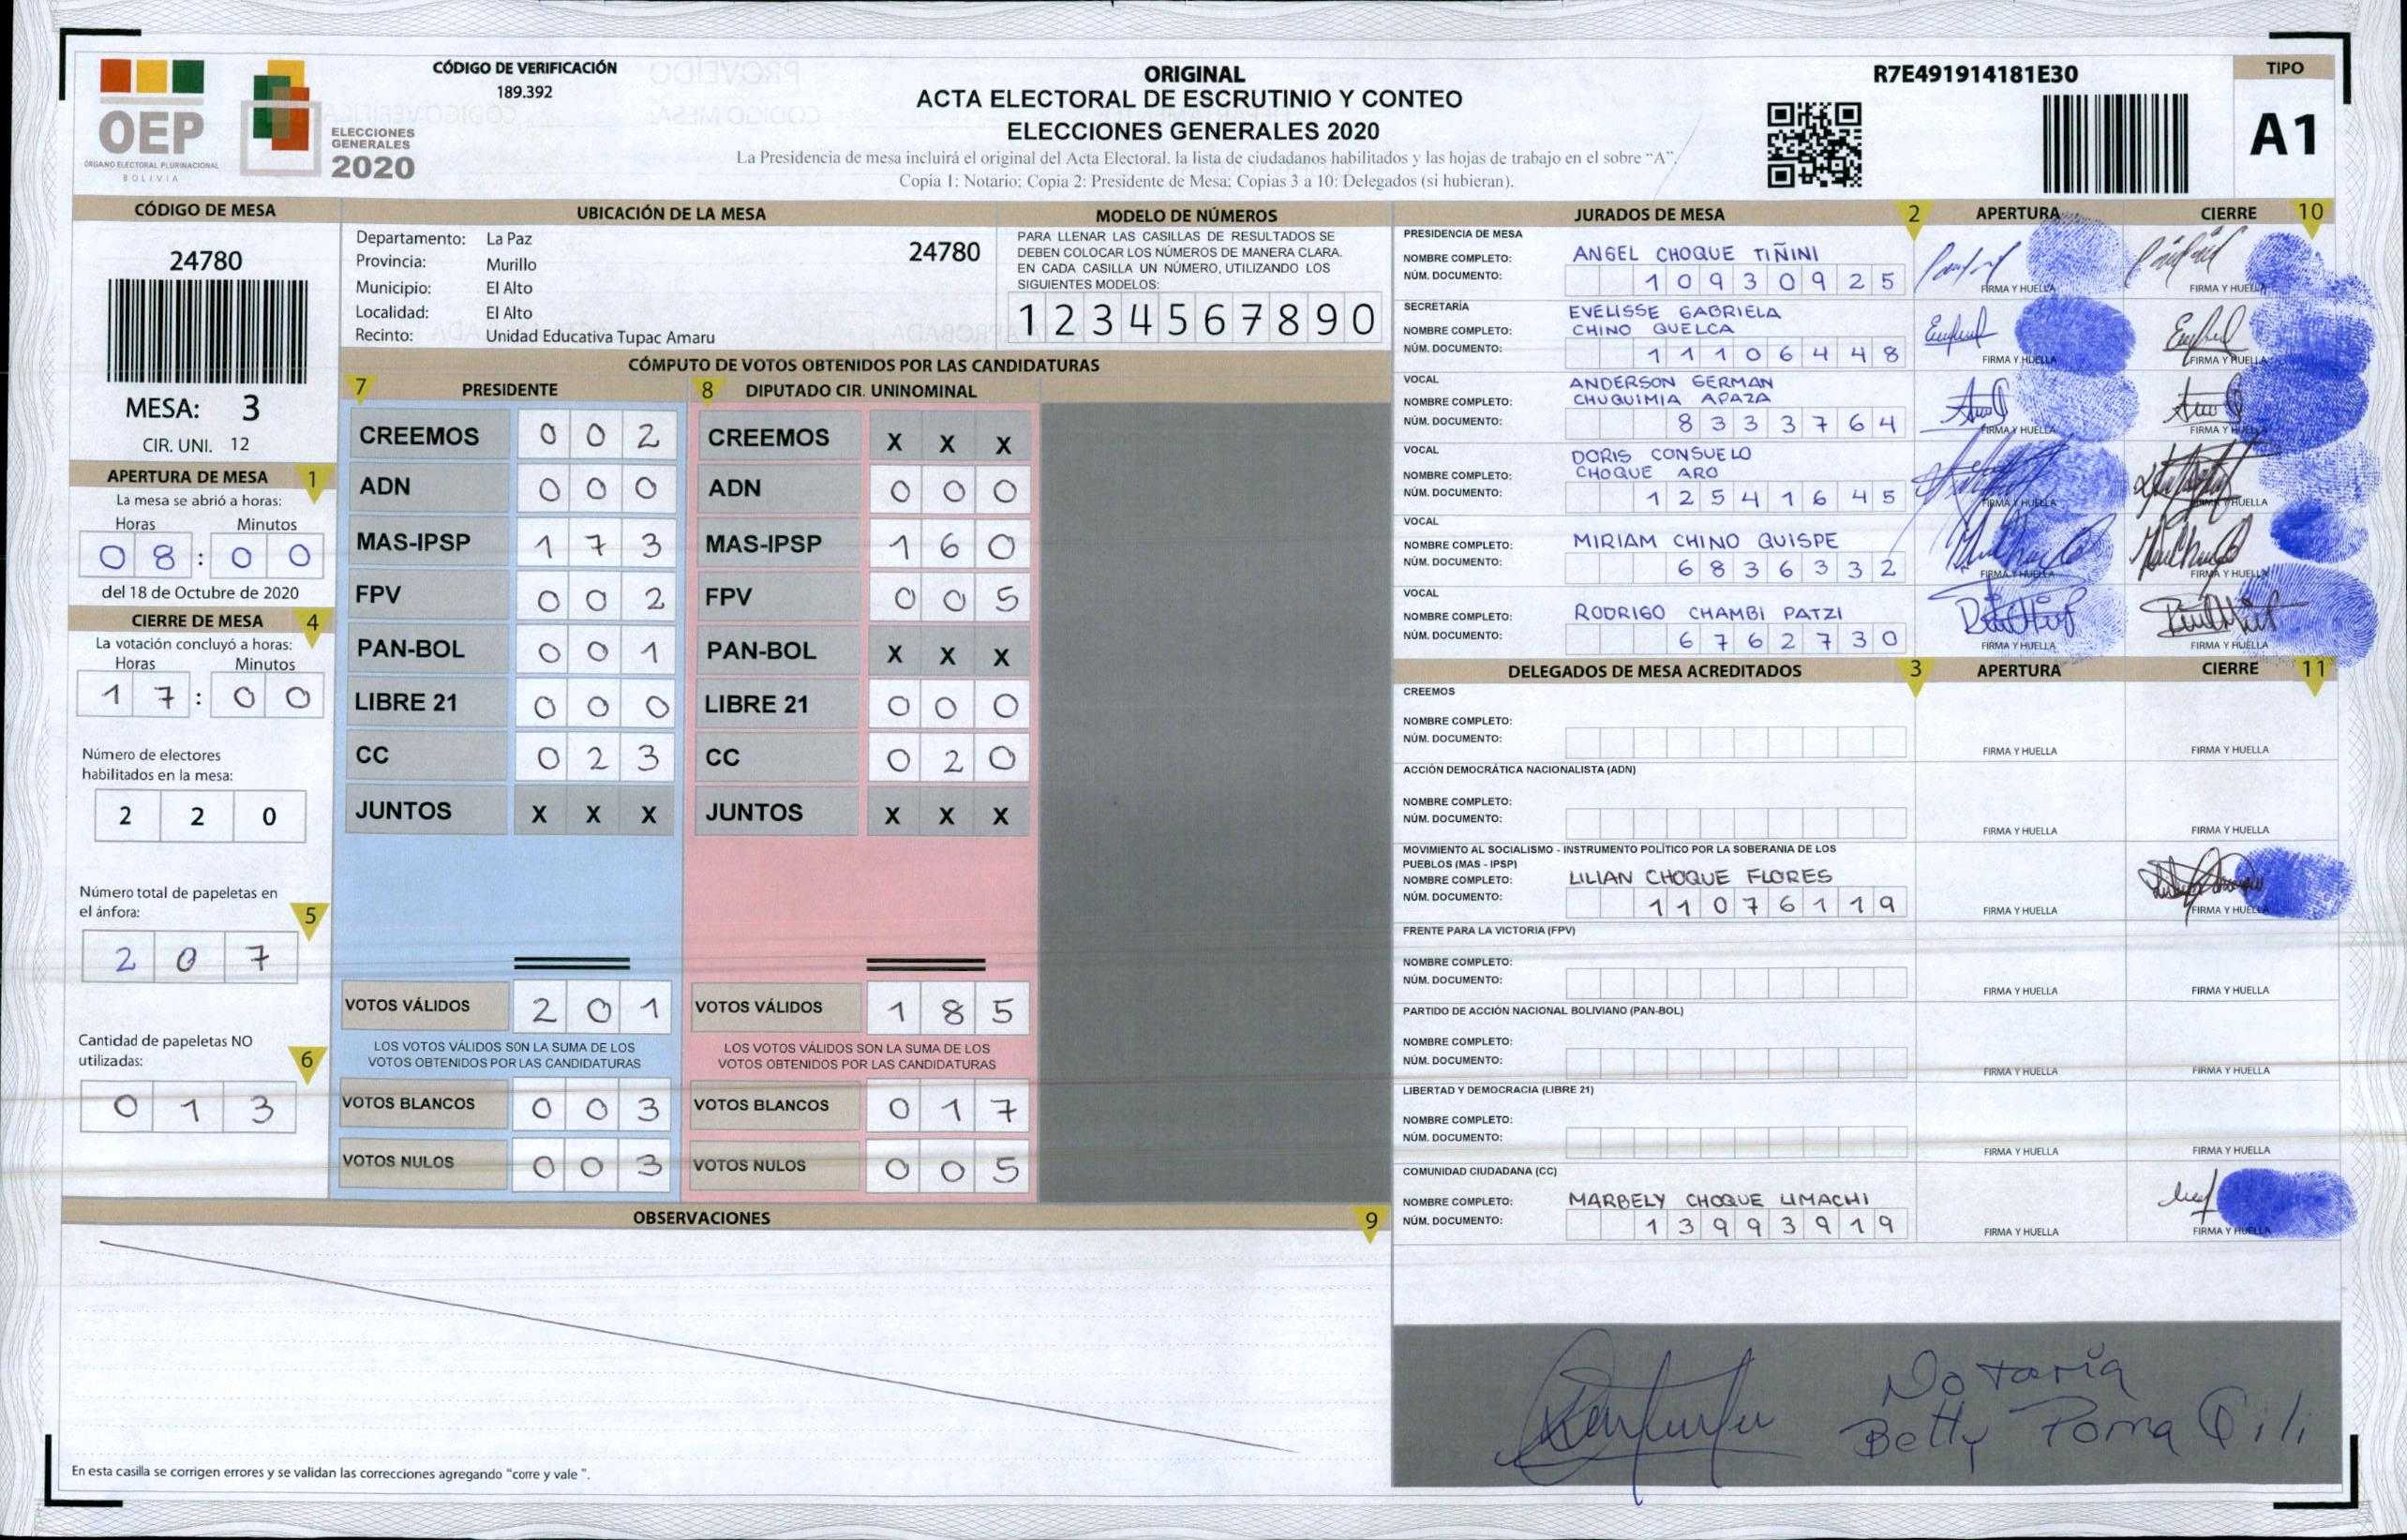 CÓDIGO DE VERIFICACIÓN
189.392
OEP
ÓRGANO ELECTORAL PLURINACIONAL
BOLIVIA
ELECCIONES
GENERALES
2020
ORIGINAL
ACTA ELECTORAL DE ESCRUTINIO Y CONTEO
ELECCIONES GENERALES 2020
La Presidencia de mesa incluirá el original del Acta Electoral, la lista de ciudadanos habilitados y las hojas de trabajo en el sobre "A".
Copia 1: Notario; Copia 2: Presidente de Mesa; Copias 3 a 10: Delegados (si hubieran).
R7E491914181E30
TIPO
A1
CÓDIGO DE MESA
24780
MESA: 3
CIR. UNI. 12
APERTURA DE MESA 1
La mesa se abrió a horas:
Horas Minutos
08:00
del 18 de Octubre de 2020
CIERRE DE MESA 4
La votación concluyó a horas:
Horas Minutos
17:00
Número de electores
habilitados en la mesa:
2 2 0
Número total de papeletas en
el ánfora: 5
2 0 7
Cantidad de papeletas NO
utilizadas: 6
0 1 3
UBICACIÓN DE LA MESA
Departamento: La Paz 24780
Provincia: Murillo
Municipio: El Alto
Localidad: El Alto
Recinto: Unidad Educativa Tupac Amaru
MODELO DE NÚMEROS
PARA LLENAR LAS CASILLAS DE RESULTADOS SE
DEBEN COLOCAR LOS NÚMEROS DE MANERA CLARA.
EN CADA CASILLA UN NÚMERO, UTILIZANDO LOS
SIGUIENTES MODELOS:
1 2 3 4 5 6 7 8 9 0
CÓMPUTO DE VOTOS OBTENIDOS POR LAS CANDIDATURAS
7 PRESIDENTE
CREEMOS 0 0 2
ADN 0 0 0
MAS-IPSP 1 7 3
FPV 0 0 2
PAN-BOL 0 0 1
LIBRE 21 0 0 0
CC 0 2 3
JUNTOS X X X
VOTOS VÁLIDOS 2 0 1
LOS VOTOS VÁLIDOS SON LA SUMA DE LOS
VOTOS OBTENIDOS POR LAS CANDIDATURAS
VOTOS BLANCOS 0 0 3
VOTOS NULOS 0 0 3
8 DIPUTADO CIR. UNINOMINAL
CREEMOS X X X
ADN 0 0 0
MAS-IPSP 1 6 0
FPV 0 0 5
PAN-BOL X X X
LIBRE 21 0 0 0
CC 0 2 0
JUNTOS X X X
VOTOS VÁLIDOS 1 8 5
LOS VOTOS VÁLIDOS SON LA SUMA DE LOS
VOTOS OBTENIDOS POR LAS CANDIDATURAS
VOTOS BLANCOS 0 1 7
VOTOS NULOS 0 0 5
OBSERVACIONES 9
En esta casilla se corrigen errores y se validan las correcciones agregando "corre y vale".
JURADOS DE MESA 2 APERTURA CIERRE 10
PRESIDENCIA DE MESA
NOMBRE COMPLETO: ANGEL CHOQUE TIÑINI
NÚM. DOCUMENTO: 10930925
FIRMA Y HUELLA FIRMA Y HUELLA
SECRETARÍA
NOMBRE COMPLETO: EVELISSE GABRIELA
CHINO QUELCA
NÚM. DOCUMENTO: 11106448
FIRMA Y HUELLA FIRMA Y HUELLA
VOCAL
NOMBRE COMPLETO: ANDERSON GERMAN
CHUQUIMIA APAZA
NÚM. DOCUMENTO: 8333764
FIRMA Y HUELLA FIRMA Y HUELLA
VOCAL
NOMBRE COMPLETO: DORIS CONSUELO
CHOQUE ARO
NÚM. DOCUMENTO: 12541645
FIRMA Y HUELLA FIRMA Y HUELLA
VOCAL
NOMBRE COMPLETO: MIRIAM CHINO QUISPE
NÚM. DOCUMENTO: 6836332
FIRMA Y HUELLA FIRMA Y HUELLA
VOCAL
NOMBRE COMPLETO: RODRIGO CHAMBI PATZI
NÚM. DOCUMENTO: 6762730
FIRMA Y HUELLA FIRMA Y HUELLA
DELEGADOS DE MESA ACREDITADOS 3 APERTURA CIERRE 11
CREEMOS
NOMBRE COMPLETO:
NÚM. DOCUMENTO:
FIRMA Y HUELLA FIRMA Y HUELLA
ACCIÓN DEMOCRÁTICA NACIONALISTA (ADN)
NOMBRE COMPLETO:
NÚM. DOCUMENTO:
FIRMA Y HUELLA FIRMA Y HUELLA
MOVIMIENTO AL SOCIALISMO - INSTRUMENTO POLÍTICO POR LA SOBERANIA DE LOS
PUEBLOS (MAS - IPSP)
NOMBRE COMPLETO: LILIAN CHOQUE FLORES
NÚM. DOCUMENTO: 11076119
FIRMA Y HUELLA FIRMA Y HUELLA
FRENTE PARA LA VICTORIA (FPV)
NOMBRE COMPLETO:
NÚM. DOCUMENTO:
FIRMA Y HUELLA FIRMA Y HUELLA
PARTIDO DE ACCIÓN NACIONAL BOLIVIANO (PAN-BOL)
NOMBRE COMPLETO:
NÚM. DOCUMENTO:
FIRMA Y HUELLA FIRMA Y HUELLA
LIBERTAD Y DEMOCRACIA (LIBRE 21)
NOMBRE COMPLETO:
NÚM. DOCUMENTO:
FIRMA Y HUELLA FIRMA Y HUELLA
COMUNIDAD CIUDADANA (CC)
NOMBRE COMPLETO: MARBELY CHOQUE LIMACHI
NÚM. DOCUMENTO: 13993919
FIRMA Y HUELLA FIRMA Y HUELLA
Notaria
Betty Poma Qili